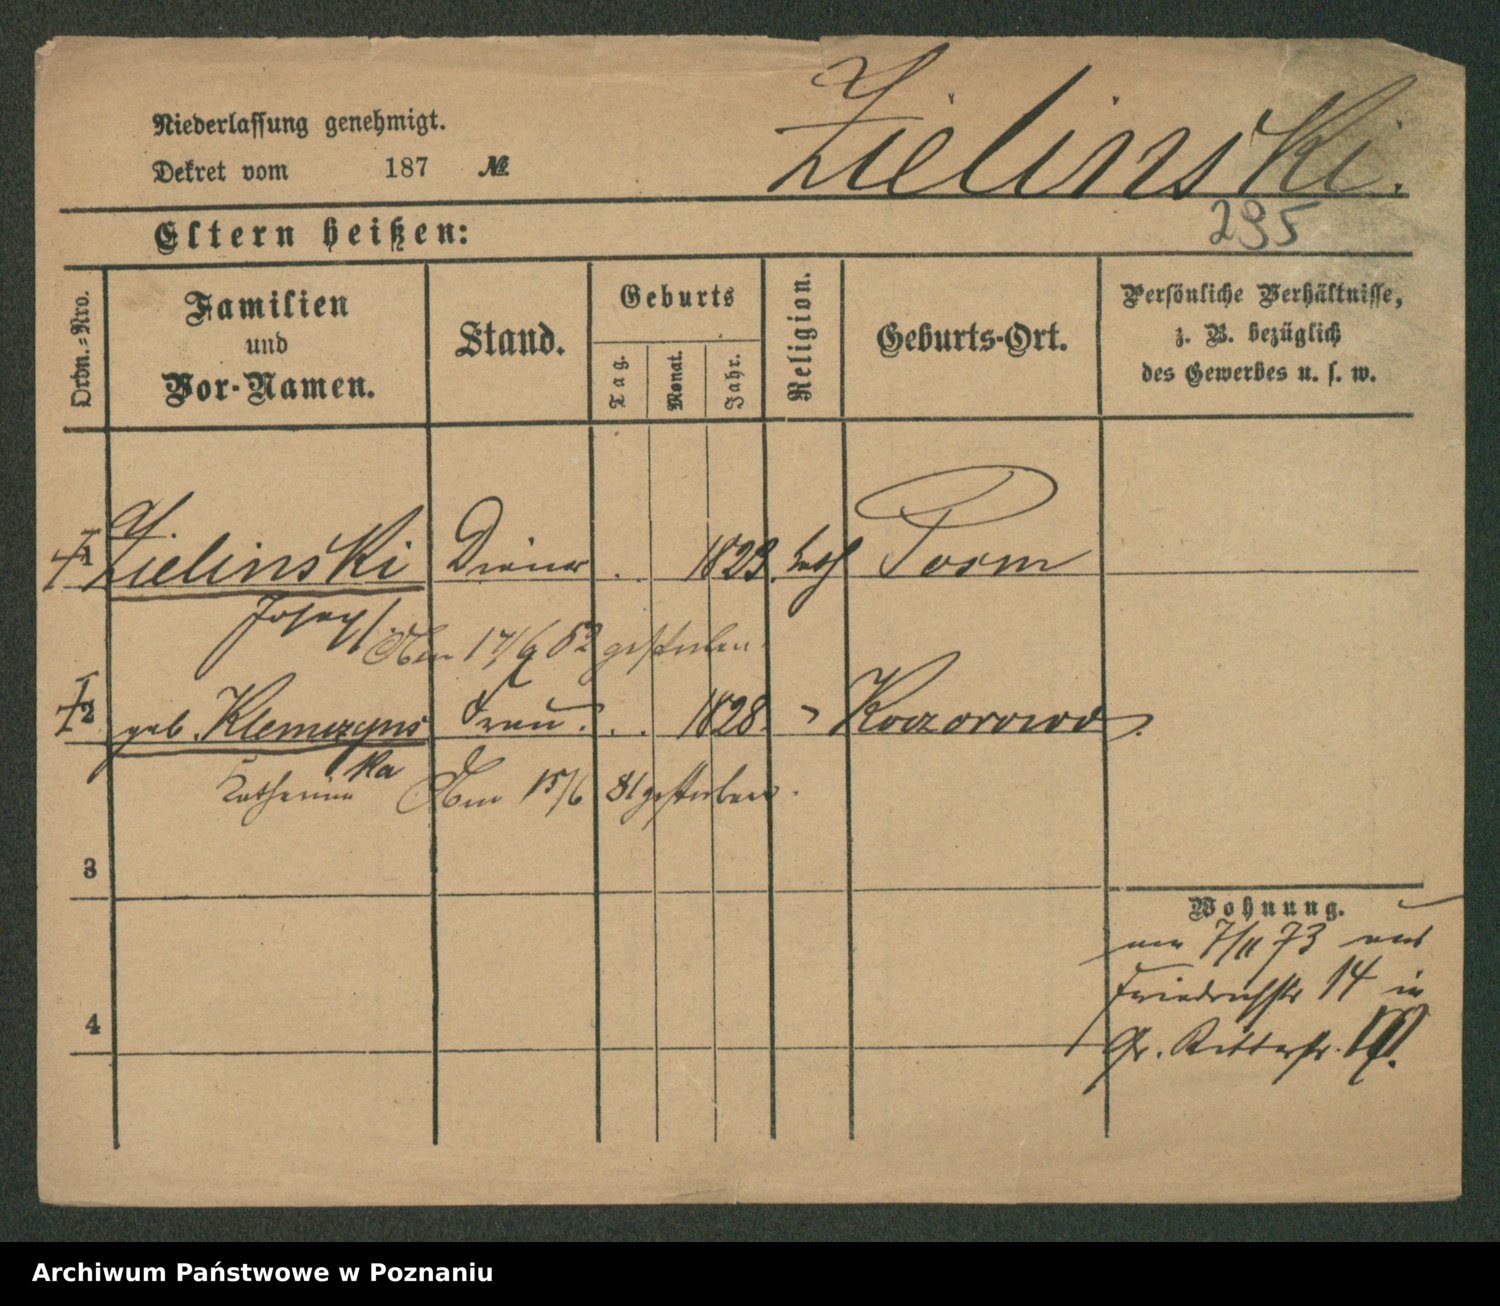 Zielinski.
Niederlassung genehmigt.
Dekret vom 187 №
295
Eltern heißen:
Ordn.=Nro.
Familien
und
Vor-Namen.
Stand.
Geburts
Tag.
Monat.
Jahr.
Religion.
Geburts-Ort.
Persönliche Verhältnisse,
z. B. bezüglich
des Gewerbes u. s. w.
1 Zielinski Diener . . 1823. kath Posen
Joseph Am 17/9 82 gestorben.
2 geb. Klemczyns Frau . . 1828.
ka
Katharina Am 15/6 81 gestorben.
3
Wohnung.
am 7/11 73 aus
Friedrichstr 14 in
4
Gr. Ritterstr.
Archiwum Państwowe w Poznaniu